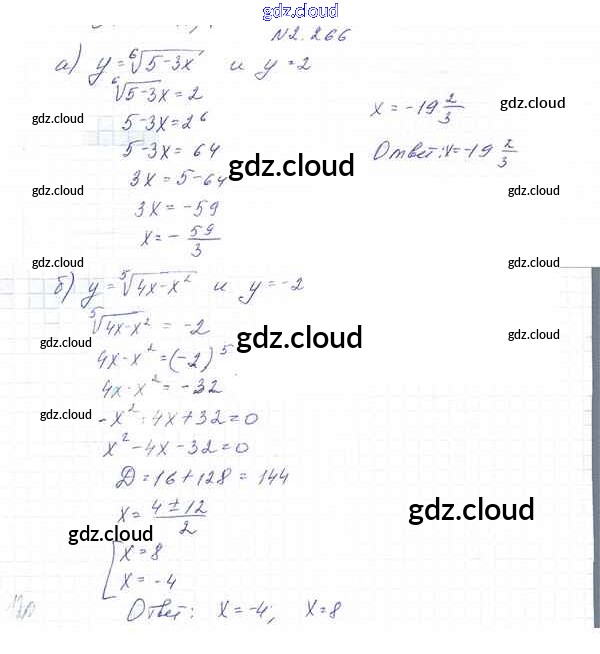 gdz.cloud
N2.266
а) y = ⁶√(5-3x) и y = 2
⁶√(5-3x) = 2
5-3x = 2⁶
5-3x = 64
3x = 5-64
3x = -59
x = - 59/3
x = -19 2/3
Ответ: x = -19 2/3
gdz.cloud
gdz.cloud
gdz.cloud
gdz.cloud
gdz.cloud
gdz.cloud
б) y = ⁵√(4x-x²) и y = -2
⁵√(4x-x²) = -2
4x-x² = (-2)⁵
4x-x² = -32
-x²+4x+32=0
x²-4x-32=0
D=16+128=144
x = (4±12)/2
[x=8
x=-4
Ответ: x=-4; x=8
gdz.cloud
gdz.cloud
gdz.cloud
gdz.cloud
gdz.cloud
gdz.cloud